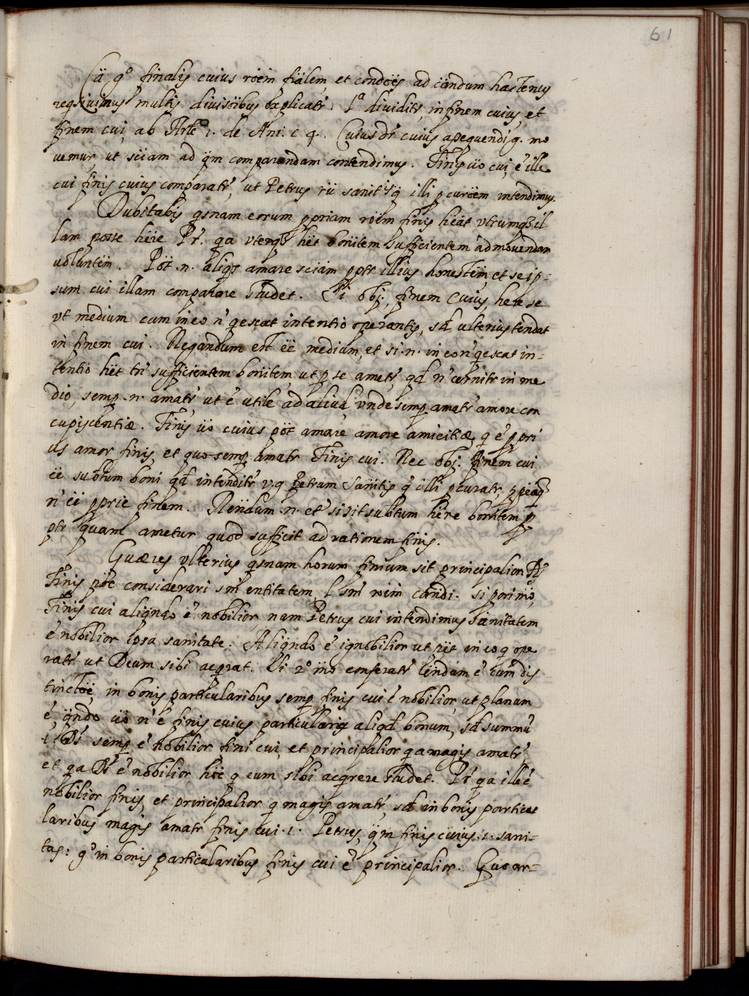 61
Cä gº finalis cuius röem fiälem et condöes ad cändum hactenus
inquisivimus multis divisiibus explicatr. 1ª dividitr in finem cuius, et
finem cui, ab Arte 2. de Ani: c 4. Cuius dr cuius assequendi g. mo
vemur, ut sciam ad qm comparandam contendimus. Finis uö cui, ë ille
cui finis cuius comparatr, ut Petrus rü sanitas illi pcuröem intendimus.
Dubitabis qsnam eorum ppriam röem finis heät utrumq; il
lam posse hëre Pr. qa uterq; hët bonitem sufficientem ad movendam
voluntëm. Pöt .n. aliqs amare sciam ppter illius honestëm et seip-
sum cui illam comparare studet. Si obj: finem cuius here se
ut medium cum in eo n qescat intentio operantis, sed ulterius tendat
in finem cui. Negandum est ëe medium, et si .n. in eo n qescat in-
tentio hët tn sufficientem bonitem, ut p se ametr qd n cernitr in me
dio, semp .n. amatr ut ë utile ad aliud unde semp amatr amore con
cupiscentiæ. Finis uö cuius pöt amare amore amicitiæ, q ë ppri
us amor finis, et quo semp amatr Finis cui. Nec obj: finem cui
ëe subtum boni qd intenditr v.g. Petrum sanitis q illi pcuratr,
n ëe pprie finem. Nëndum .n. et si sit subtum hëre bonitem p
ptr quam ametur quod sufficit ad rationem finis.
Quæres ulterius qsnam horum finium sit principalior. Rr
Finis pöt considerari sm entitatem l sm röem cändi. si primo
Finis cui aliqndo ë nobilior nam Petrus cui intendimus sanitatem
ë nobilior ipsa sanitate. Aliqndo ë ignobilior ut pët in eo q ope
ratr ut Deum sibi acqrat. Si 2º mo conseratr cëndum ë cum dis
tinctöe, in bonis particularibus semp finis cui ë nobilior ut planum
ë, qndo uö n ë finis cuius particularis aliqd bonum, sed summu
.i. Ds semp ë nobilior fini cui, et principalior qa magis amatr
et qa Ds ë nobilior höe q eum sibi acqrere studet. Pr qa ille ë
nobilior finis, et principalior q magis amatr, sed in bonis particu
laribus magis amatr finis cui .i. Petrus, qm finis cuius .i. sani-
tas: gº in bonis particularibus finis cui ë principalior. Quar-